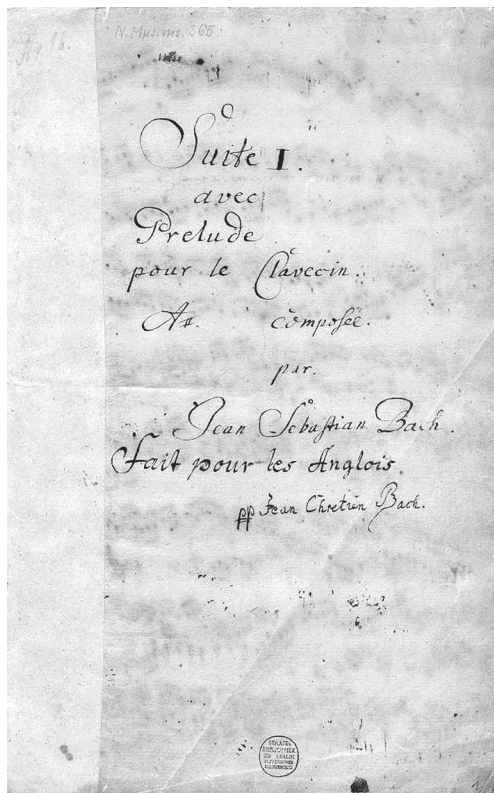 N. Mus. ms. 365
Suite I.
avec
Prelude
pour le Clavecin.
A#. composée.
par.
Jean Sebastian Bach.
Fait pour les Anglois.
pp Jean Chretien Bach.